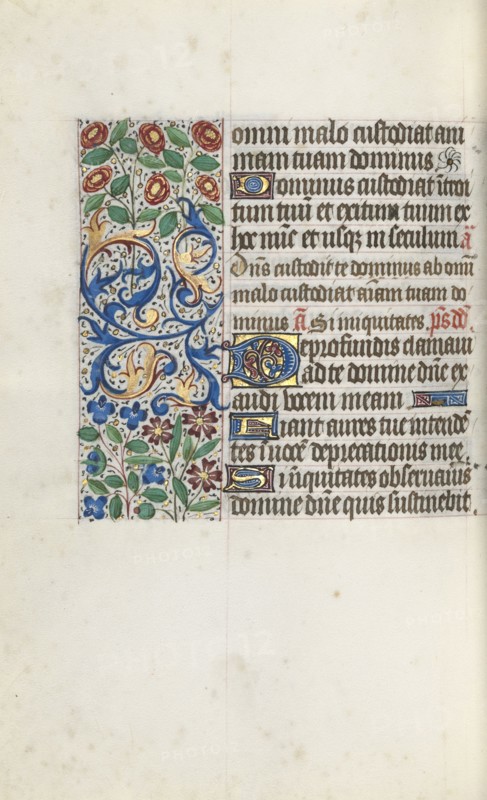 omni malo custodiat ani
mam tuam dominus
Dominus custodiat introi
tum tuū et exitum tuum ex
hoc nūc et usqꝫ in seculum ā
Dn̄s custodit te dominus ab omī
malo custodiat aīam tuam do
minus ā Si iniquitates ps dd̄
De profundis clamaui
ad te domine dn̄e ex
audi vocem meam
Fiant aures tue intendē
tes in vocē deprecationis mee
Si īiquitates obseruaueris
domine dn̄e quis sustinebit